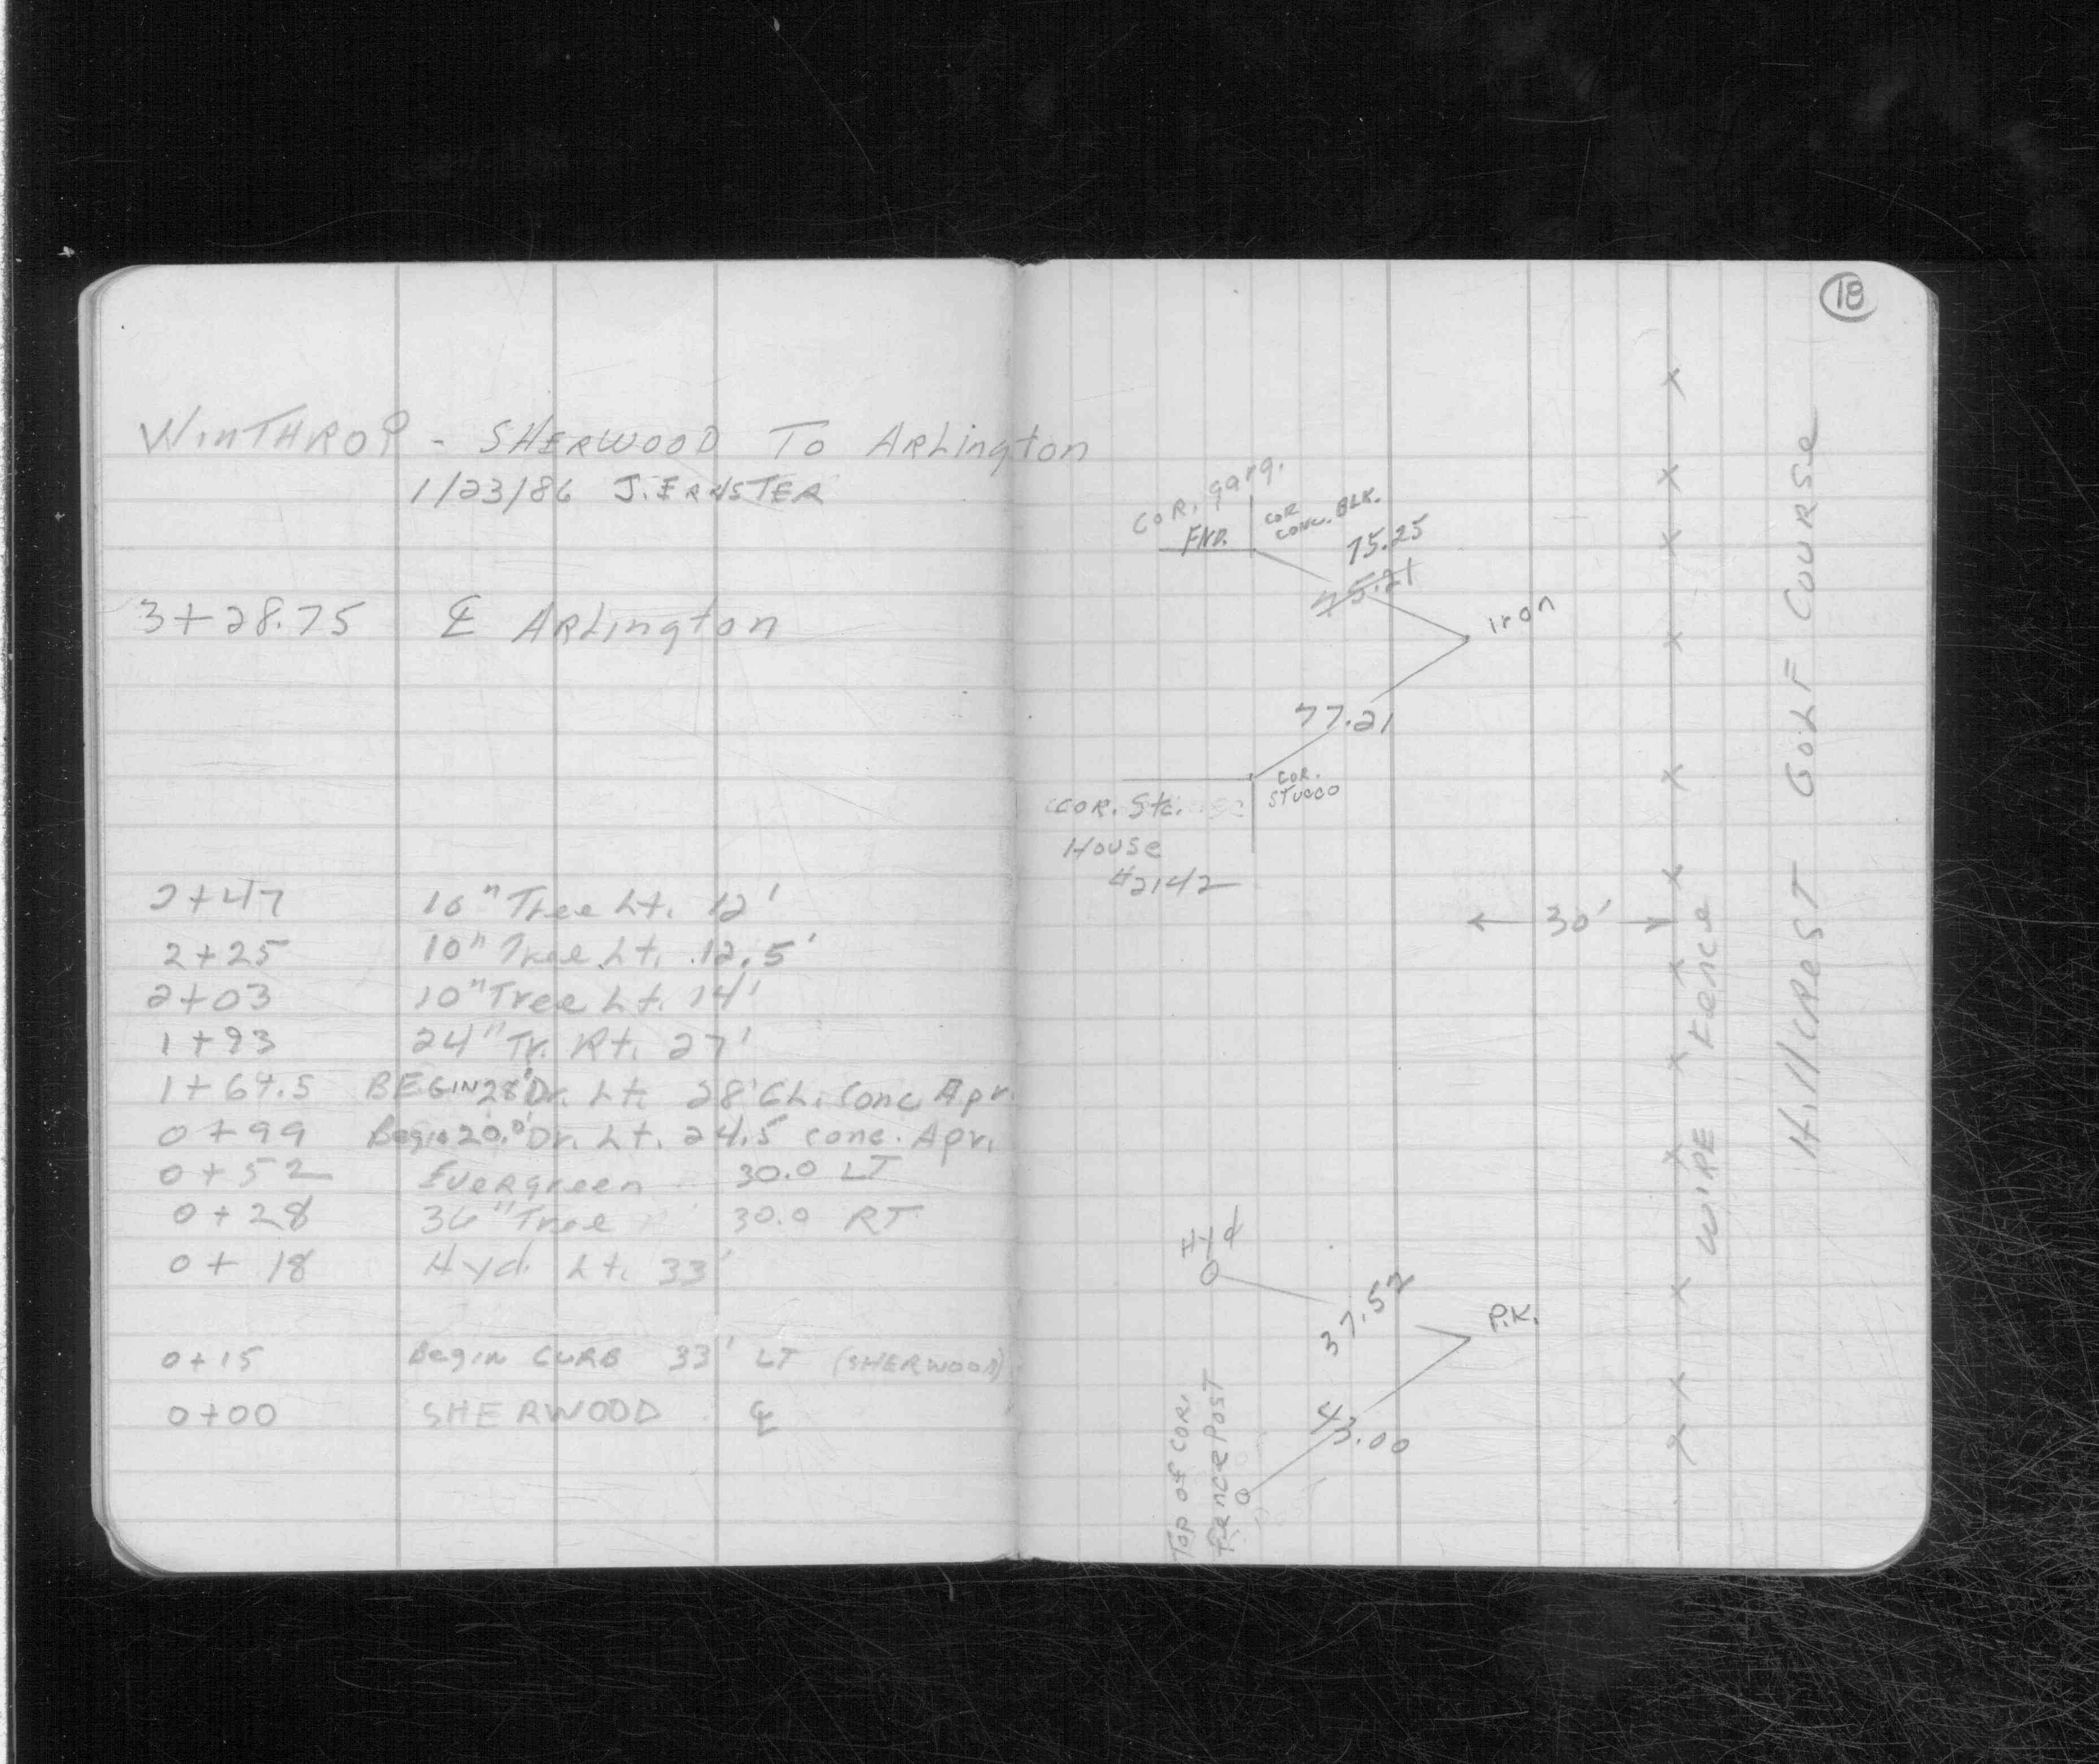 18
WINTHROP - SHERWOOD TO ARLington
1/23/86 J. ERNSTER
3+28.75 ℄ ARLington
2+47 10" Tree Lt. 12'
2+25 10" Tree Lt. 12.5'
2+03 10" Tree Lt. 14'
1+93 24" Tr. Rt. 27'
1+64.5 BEGIN 28' Dr. Lt. 28' CL. Conc Apr.
0+99 Begin 20.0' Dr. Lt. 24.5 conc. Apr.
0+52 Evergreen 30.0 LT
0+28 36" Tree 30.0 RT
0+18 Hyd. Lt. 33'
0+15 Begin CURB 33' LT (SHERWOOD)
0+00 SHERWOOD ℄
COR. garg.
FND.
COR
CONC. BLK.
75.25
75.21
iron
77.21
COR.
STUCCO
COR. Stc.
House
#2142
30'
WIRE Fence
HillCReST GOLF COURSe
Hyd
37.52
P.K.
43.00
Top of COR.
FenCe POST